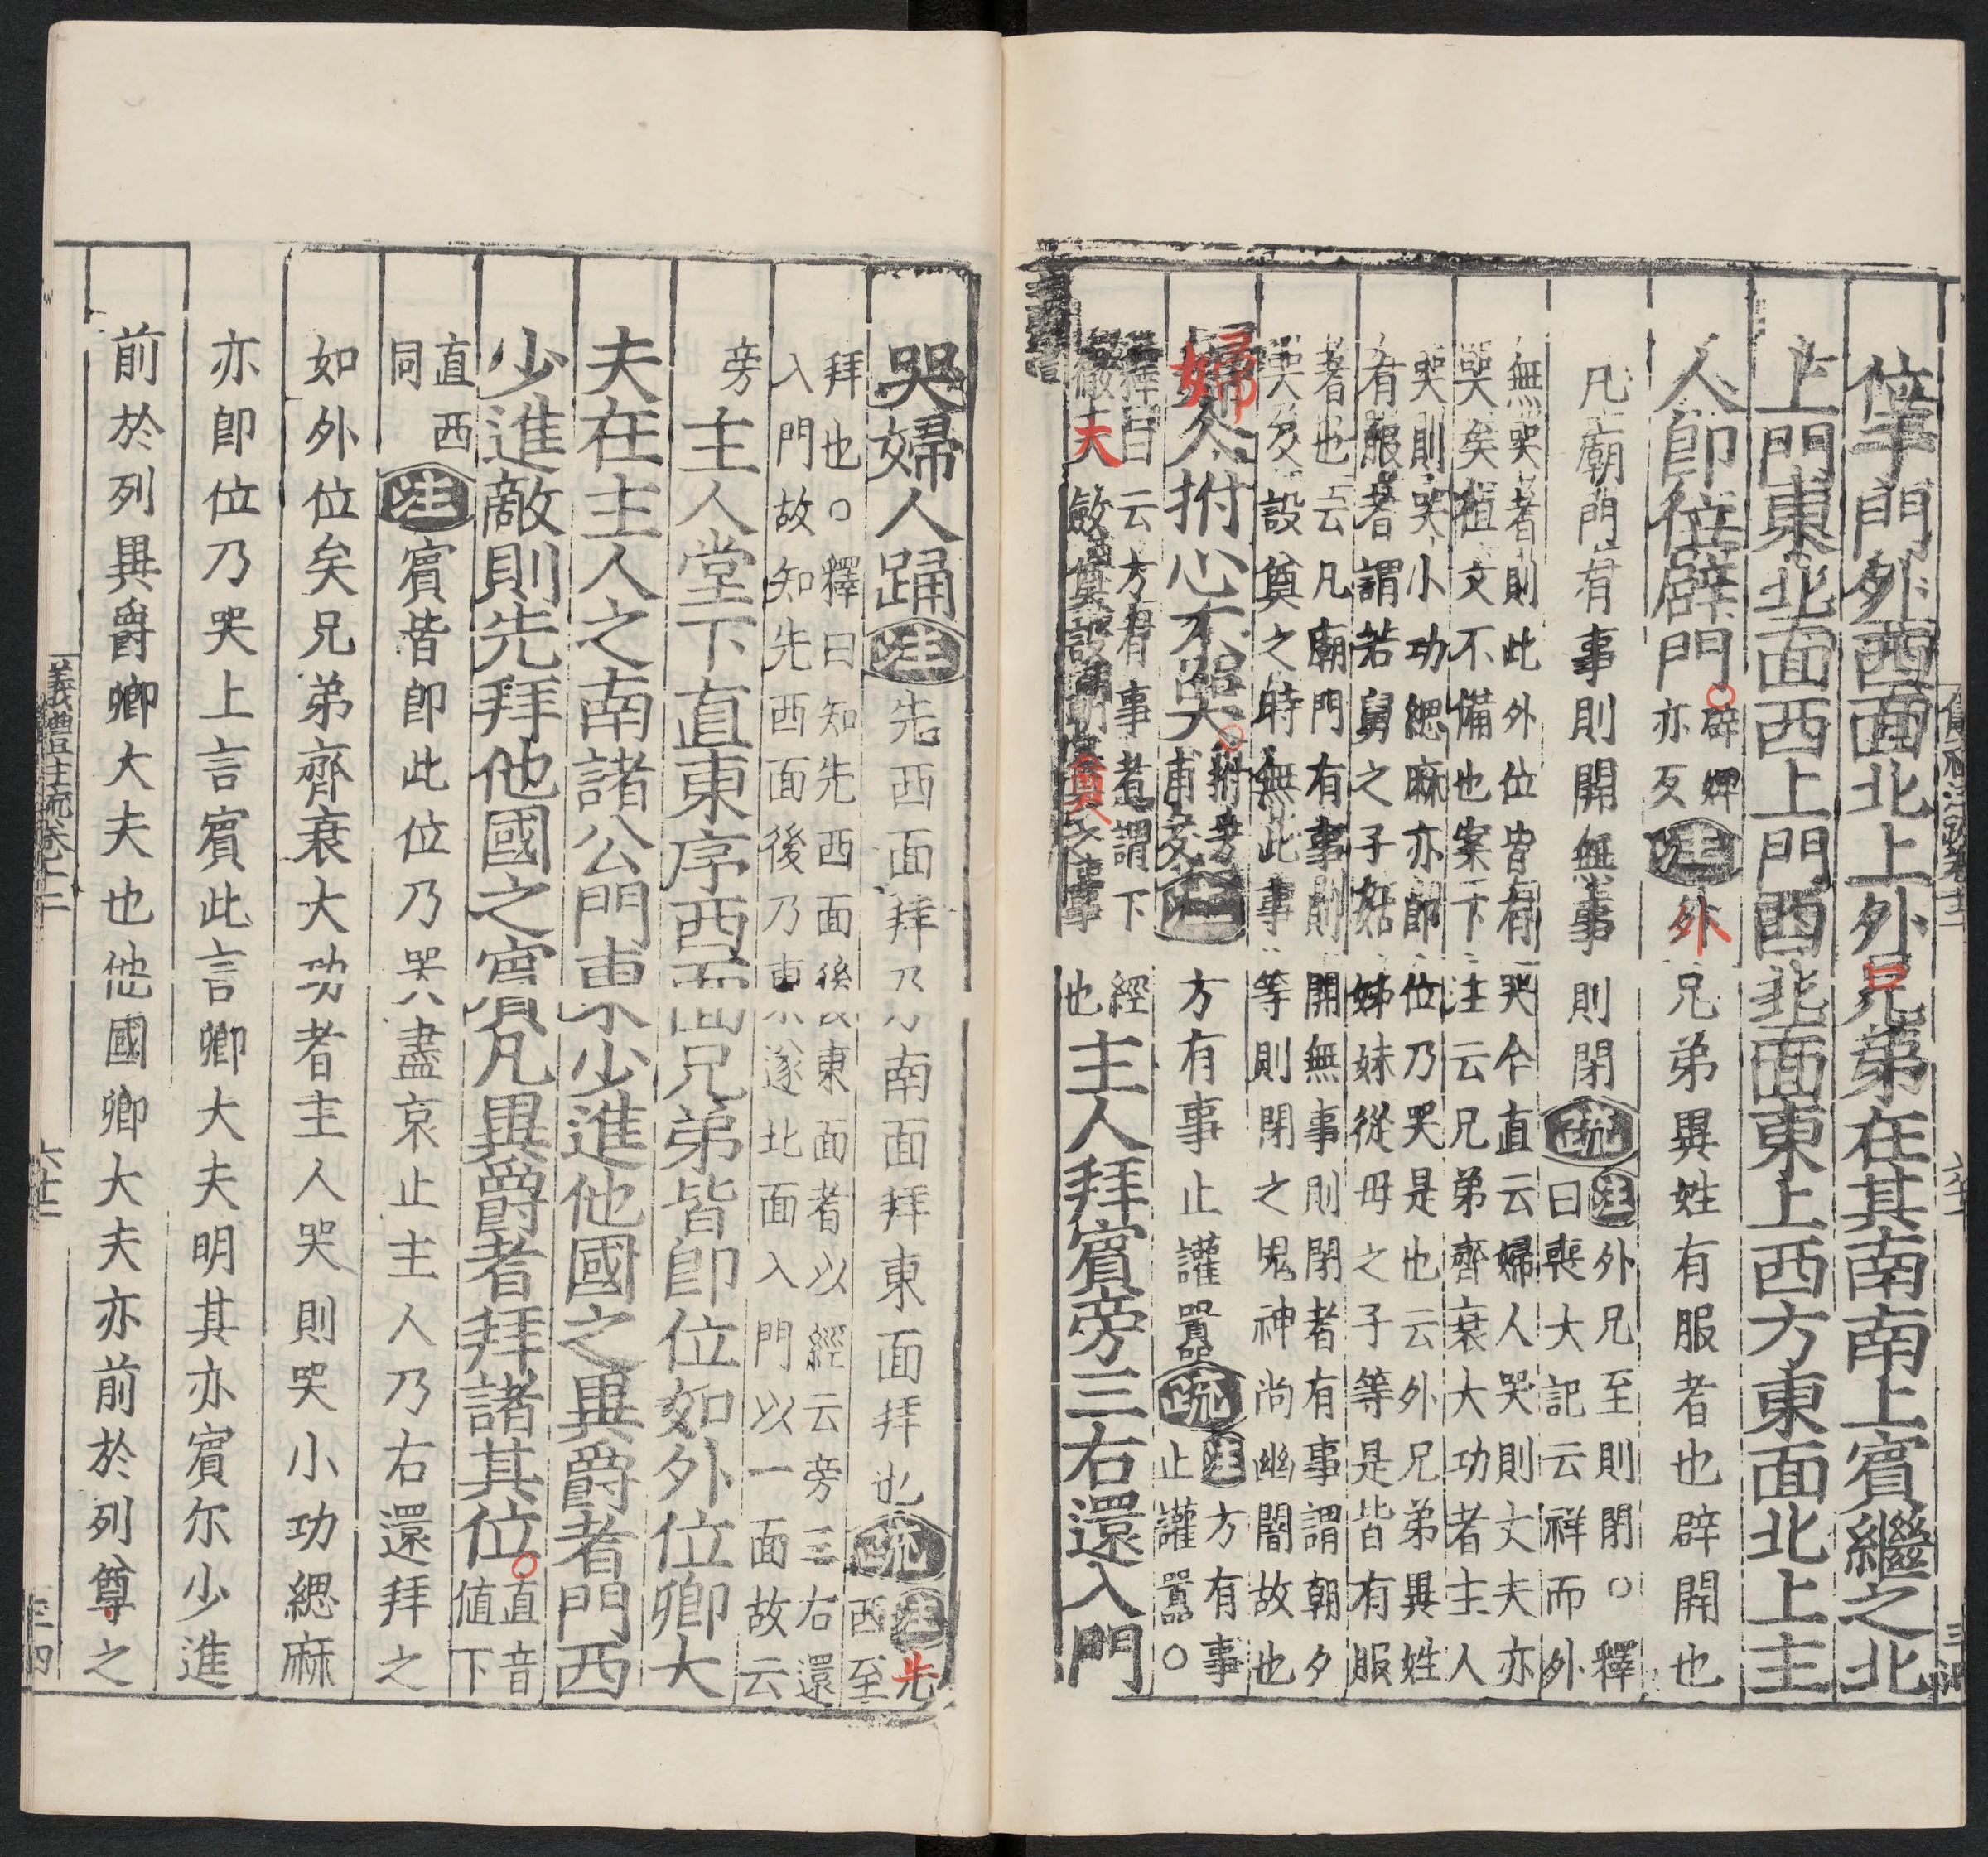 位于門外西面北上外兄弟在其南南上賓繼之北
上門東北面西上門西北面東上西方東面北上主
人即位辟門辟婢亦反注外兄弟異姓有服者也辟開也
凡廟門有事則開無事則閉疏注外兄至則閉○釋曰喪大記云祥而外
無哭者則此外位皆有哭今直云婦人哭則丈夫亦
哭矣植文不備也案下注云兄弟齊衰大功者主人
哭則哭小功緦麻亦即位乃哭是也云外兄弟異姓
有服者謂若舅之子姑姊妹從母之子等是皆有服
者也云凡廟門有事則開無事則閉者有事謂朝夕
哭及設奠之時無此事等則閉之鬼神尚幽闇故也
婦人拊心不哭拊芳甫反注方有事止讙囂疏注方有事止讙囂○
釋曰云方有事者謂下經
徹大斂奠設朝奠之事也
主人拜賓旁三右還入門
哭婦人踊注先西面拜乃南面拜東面拜也疏注先西至
拜也○釋曰知先西面後東面者以經云旁三右還
入門故知先西面後乃東遂北面入門以一面故云
旁主人堂下直東序西面兄弟皆即位如外位卿大
夫在主人之南諸公門東少進他國之異爵者門西
少進敵則先拜他國之賓凡異爵者拜諸其位直音值下
直西同注賓皆即此位乃哭盡哀止主人乃右還拜之
如外位矣兄弟齊衰大功者主人哭則哭小功緦麻
亦即位乃哭上言賓此言卿大夫明其亦賓尔少進
前於列異爵卿大夫也他國卿大夫亦前於列尊之